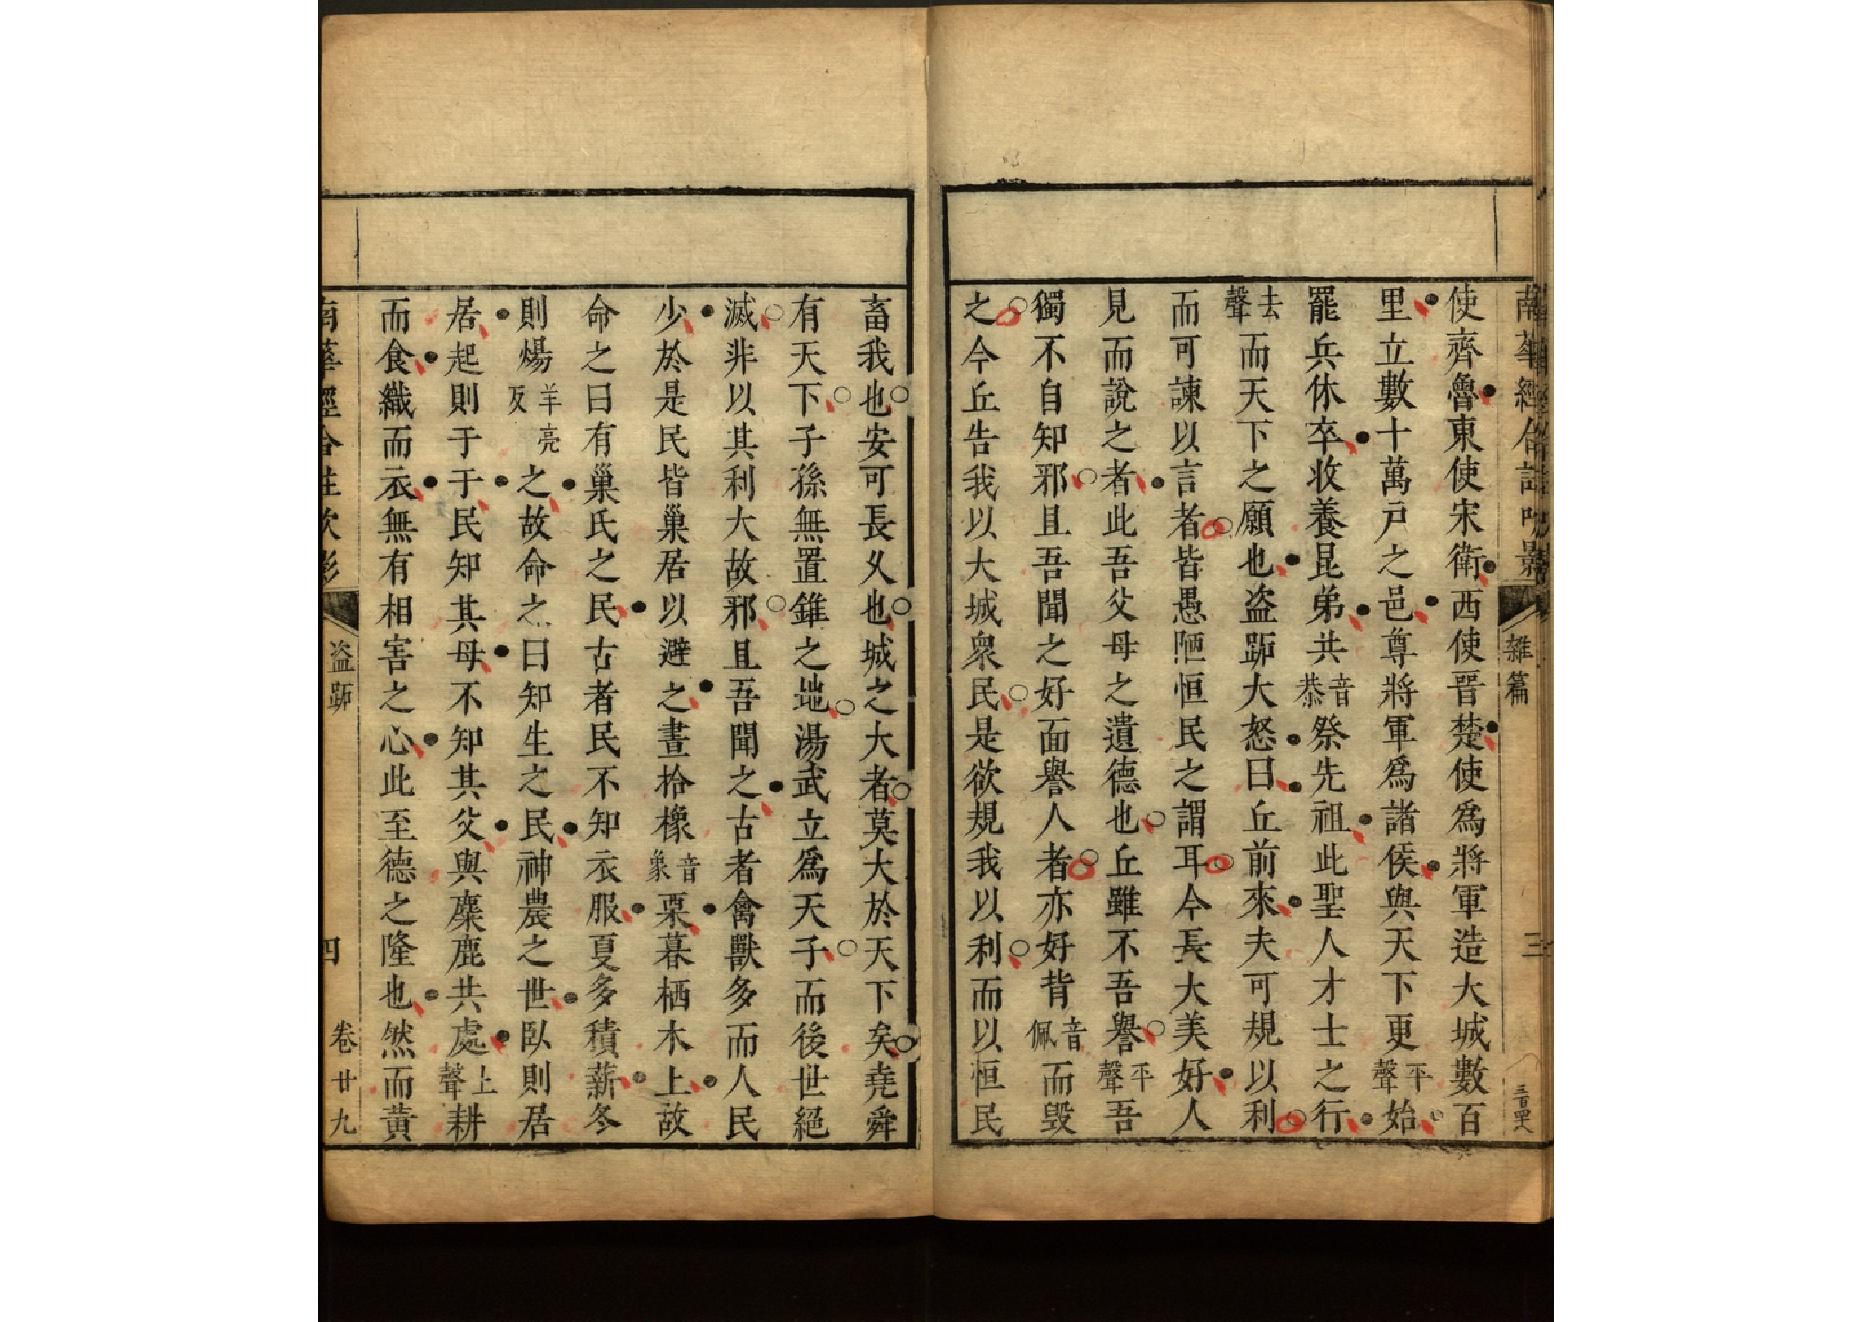 雜篇
三
使齊魯東使宋衛西使晉楚使爲將軍造大城數百
里立數十萬戸之邑尊將軍爲諸侯與天下更平聲始
罷兵休卒收養昆弟共音恭祭先祖此聖人才士之行
去聲而天下之願也盗跖大怒曰丘前來夫可規以利
而可諫以言者皆愚陋恒民之謂耳今長大美好人
見而說之者此吾父母之遺德也丘雖不吾譽平聲吾
獨不自知邪且吾聞之好面譽人者亦好背音佩而毀
之今丘告我以大城衆民是欲規我以利而以恒民
畜我也安可長乆也城之大者莫大於天下矣堯舜
有天下子孫無置錐之地湯武立爲天子而後世絕
滅非以其利大故邪且吾聞之古者禽獸多而人民
少於是民皆巢居以避之晝拾橡音象栗暮栖木上故
命之曰有巢氏之民古者民不知衣服夏多積薪冬
則煬羊亮反之故命之曰知生之民神農之世臥則居
居起則于于民知其母不知其父與麋鹿共處上聲耕
而食織而衣無有相害之心此至德之隆也然而黄
盗跖
四
卷廿九